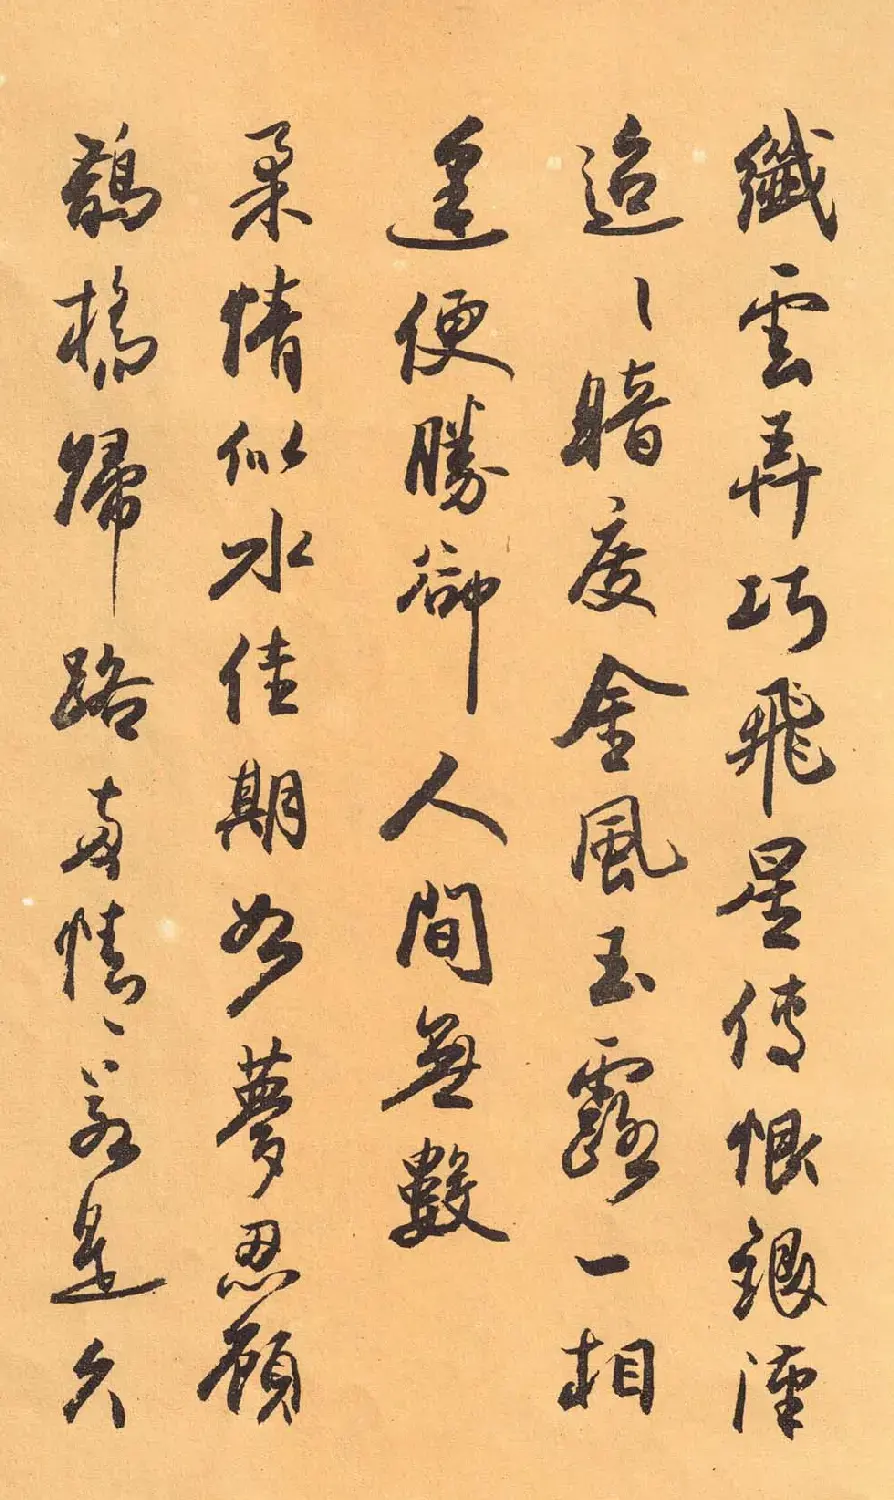 纖雲弄巧飛星傳恨銀漢
迢〻暗度金風玉露一相
逢便勝卻人間無數
柔情似水佳期如夢忍顧
鵲橋歸路兩情若是久